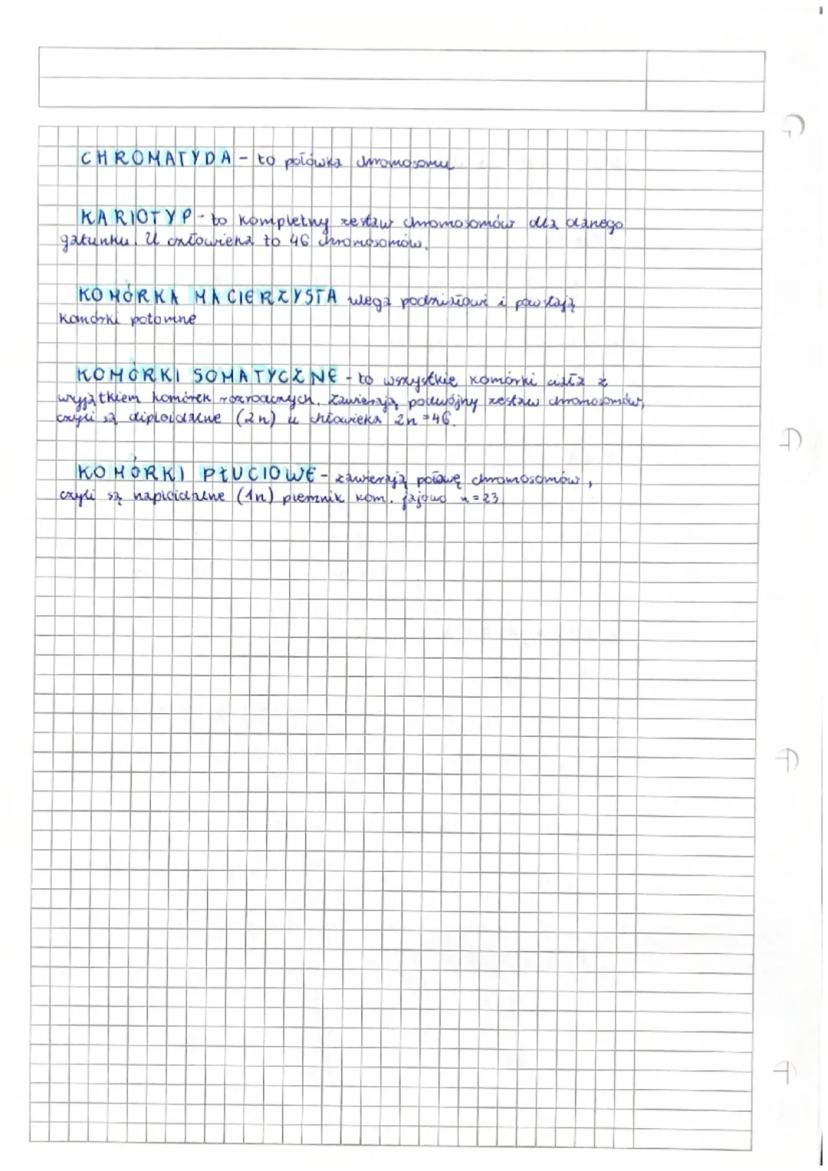 CHROMATYDA - to połówka chromosomu
KARIOTYP - to kompletny zestaw chromosomów dla danego
gatunku. U człowieka to 46 chromosomów.
KOMÓRKA MACIERZYSTA ulega podziałowi i powstają
komórki potomne
KOMÓRKI SOMATYCZNE - to wszystkie komórki ciała z
wyjątkiem komórek rozrodczych. Zawierają podwójny zestaw chromosomów,
czyli są diploidalne (2n) u człowieka 2n = 46.
KOMÓRKI PŁCIOWE - zawierają połowę chromosomów,
czyli są haploidalne (1n) plemnik kom. jajowa n = 23